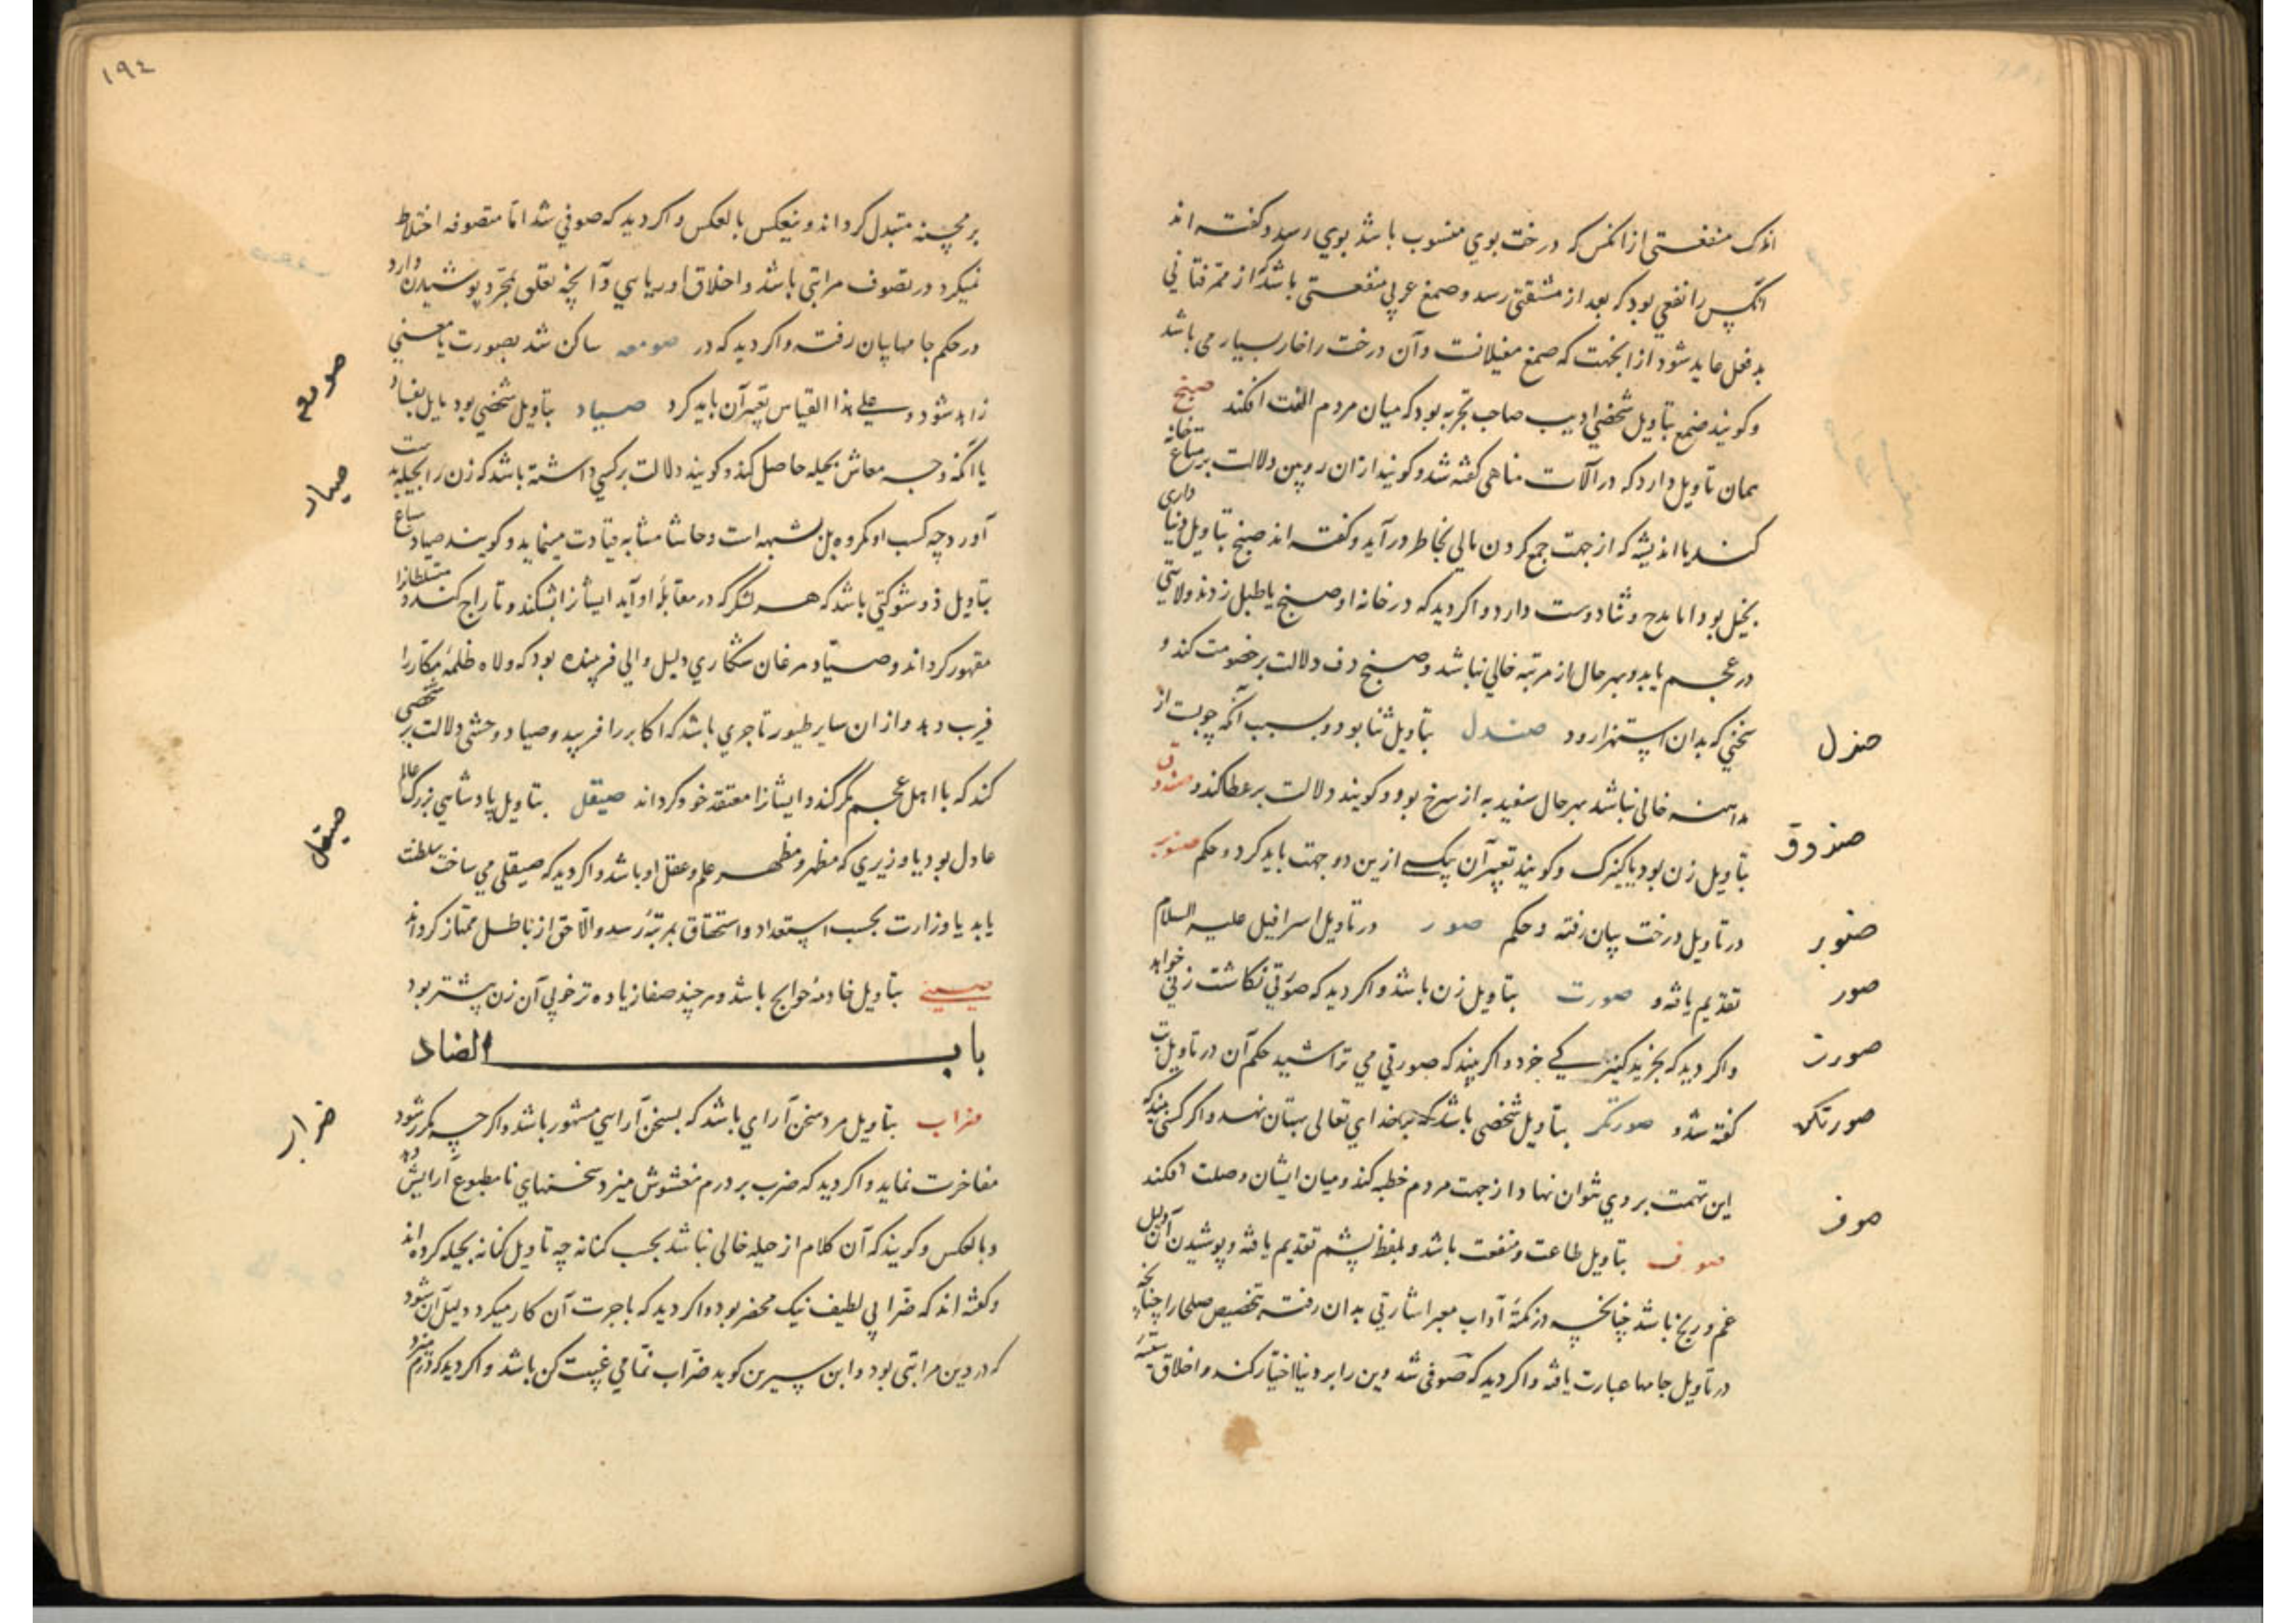 اندک منفعتی از انکس که درخت بوی منسوب باشد بوی رسد و کفته اند
انکس را نفعی بود که بعد از مشقتی رسد و صمغ عربی منفعتی باشد که از
بدفعل عاید شود از انجهت که صمغ مغیلانست و آن درخت را خار بسیار می باشد
و کویند صمغ بتاویل شخصی ادیب صاحب تجربه بود که میان مردم الفت افکند صنج
همان تاویل دارد که در آلات مناهی کفته شد و کویند از ان رویین دلالت بر متاع خانه
کند یا اندیشه که از جهت جمع کردن مالی بخاطر درآید و کفته اند صنج بتاویل دنیا داری
بخیل بود اما مدح و ثنا دوست دارد و اکر دید که در خانه او صنج یا طبل زدند ولایتی
در عجم یابد و بهر حال از مرتبه خالی نباشد و صنج دف دلالت بر خصومت کند و
سخنی که بدان استهزا رود صندل بتاویل ثنا بود و بسبب آنکه چوبست از
مداهنه خالی نباشد بهر حال سفید به از سرخ بود و کویند دلالت بر عطا کند و صندوق
بتاویل زن بود یا کنیزک و کویند تعبیر آن بیکی ازین دو جهت باید کرد و حکم صنوبر
در تاویل درخت بیان رفته و حکم صور در تاویل اسرافیل علیه السلام
تقدیم یافته و صورت بتاویل زن باشد و اکر دید که صورتی نکاشت زنی خواهد
و اکر دید که بخرید کنیزکی خرد و اکر بیند که صورتی می تراشید حکم آن در تاویل بت
کفته شد و صورتکر بتاویل شخصی باشد که بر خدای تعالی بهتان نهد و اکر کسی بیند که
این تهمت بر وی نتوان نهاد از جهت مردم خطبه کند و میان ایشان وصلت افکند
صوف بتاویل طاعت و منفعت باشد و بلفظ پشم تقدیم یافته و پوشیدن آن دلیل
غم و رنج باشد چنانچه در تکمله آداب معبر اشارتی بدان رفته بتخصیص صلحا را چنانچه
در تاویل جامها عبارت یافته و اکر دید که صوفی شد دین را بر دنیا اختیار کند و اخلاق سیئه
صندل
صندوق
صنوبر
صور
صورت
صورتکر
صوف
١٩٤
بر محسنه متبدل کرداند و ینعکس بالعکس و اکر دید که صوفی شد اما متصوفه اختلاط
نمیکرد در تصوف مرائی باشد و اخلاق او ریایی و آنچه تعلق بتجرد پوشیدن دارد
در حکم جامها بیان رفته و اکر دید که در صومعه ساکن شد بصورت یا معنی
زاهد شود و علی هذا القیاس تعبیر آن باید کرد صیاد بتاویل شخصی بود مایل بفساد
یا آنکه وجه معاش بحیله حاصل کند و کویند دلالت بر کسی داشته باشد که زن را بحیله بدست
آورد چه کسب او مکروه بل شبهه است و حاشا مشابه قیادت مینماید و کویند صیاد سباع
بتاویل ذو شوکتی باشد که هر لشکر که در مقابله او آید ایشانرا بشکند و تاراج کند و متسلطانرا
مقهور کرداند و صیاد مرغان شکاری دلیل والی فریبنده بود که ولاه ظلمه مکار را
فریب دهد و از ان سایر طیور تاجری باشد که اکابر را فریبد و صیاد وحشی دلالت بر شخصی
کند که با اهل عجم مکر کند و ایشانرا معتقد خود کرداند صیقل بتاویل پادشاهی بزرک عالم
عادل بود یا وزیری که مظهر و مظهر علم و عقل او باشد و اکر دید که صیقلی می ساخت سلطنت
یابد یا وزارت بحسب استعداد و استحقاق بمرتبه رسد و الا حق از باطل ممتاز کرداند
صینی بتاویل خادمه حوایج باشد و هر چند صفا زیاده تر خوبی آن زن بیشتر بود
باب الضاد
ضراب بتاویل مرد سخن آرای باشد که بسخن آرایی مشهور باشد و اکر چه مکرر شود
مفاخرت نماید و اکر دید که ضرب بر درم مغشوش میزد سخنهای نامطبوع آرایش دهد
و بالعکس و کویند که آن کلام از حیله خالی نباشد بحسب کنانه چه تاویل کنانه بحیله کرده اند
و کفته اند که ضرابی لطیف نیک محضر بود و اکر دید که باجرت آن کار میکرد دلیل آن شود
که در دین مرائی بود و ابن سیرین کوید ضراب نمامی غیبت کن باشد و اکر دید که درم میزد
صومعه
صیاد
صیقل
ضراب